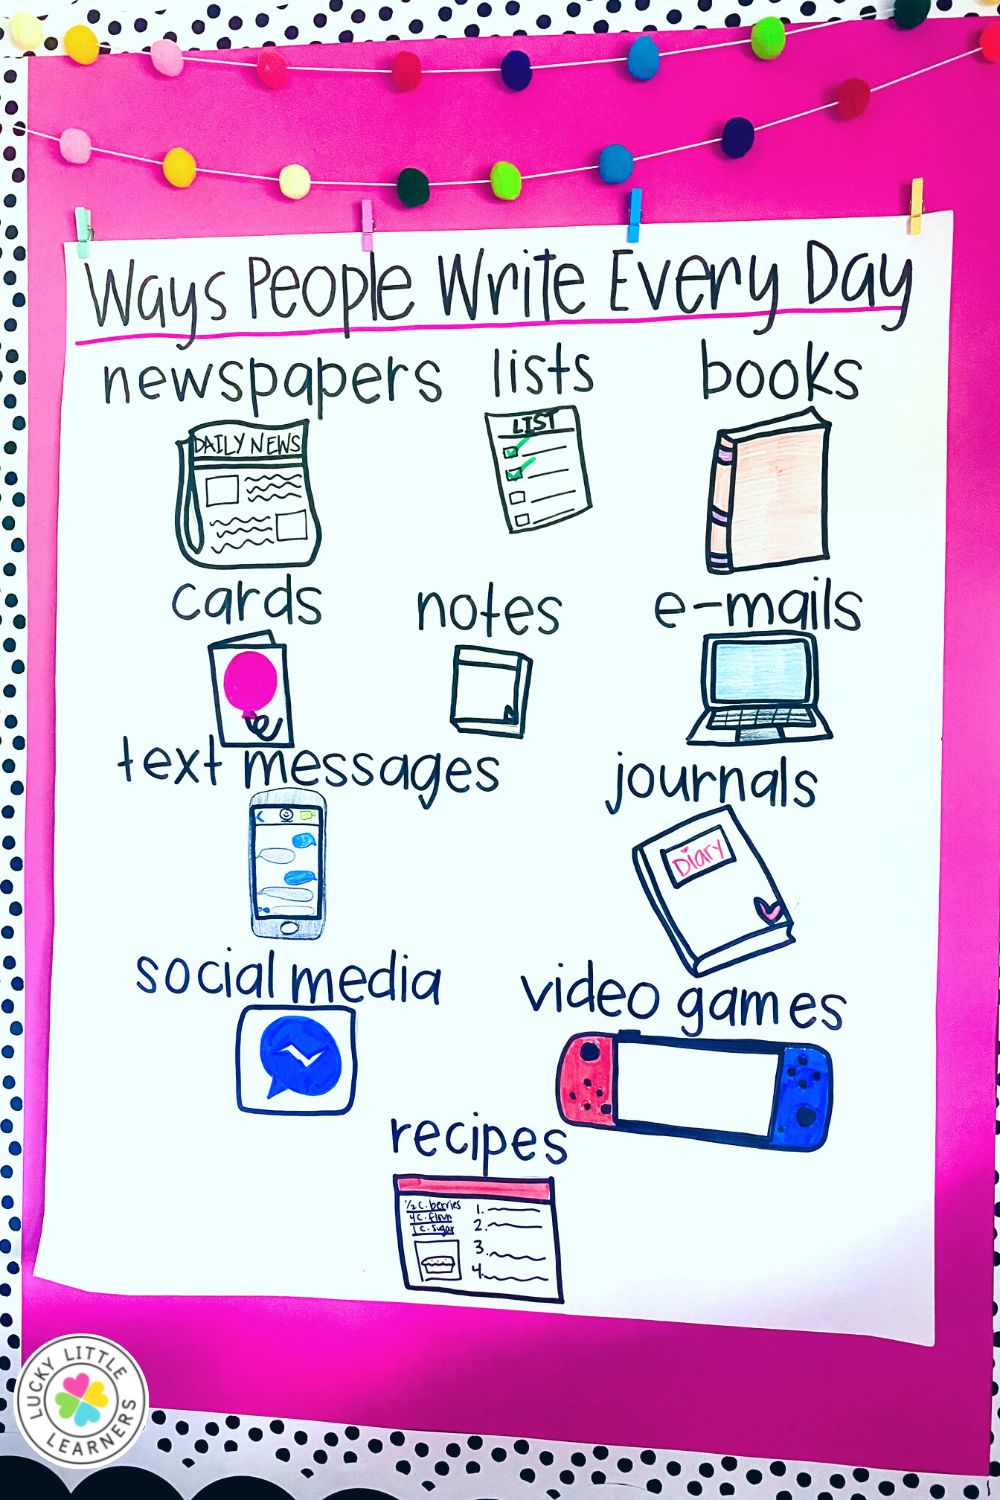 Ways People Write Every Day
newspapers lists books
DAILY NEWS
LIST
cards notes e-mails
text messages journals
Diary
social media video games
recipes
1/2 c. berries
4 c. flour
1 c. sugar
1.
2.
3.
4.
LUCKY LITTLE
LEARNERS